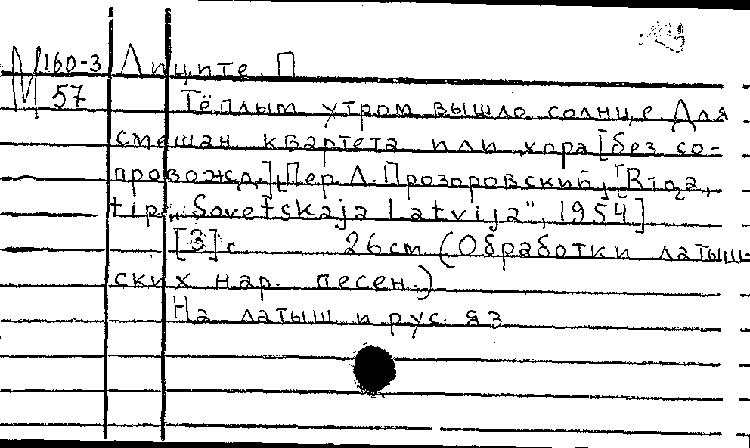 М 160-3 Лиците П
57 Тёплым утром вышло солнце Для
смешан квартета или хора [без со-
провожд.] Пер Л. Прозоровский, [Rīga,
tip. „Sovetskaja Latvija", 1954]
[3] с 26 см (Обработки латыш-
ских нар. песен.)
На латыш и рус яз